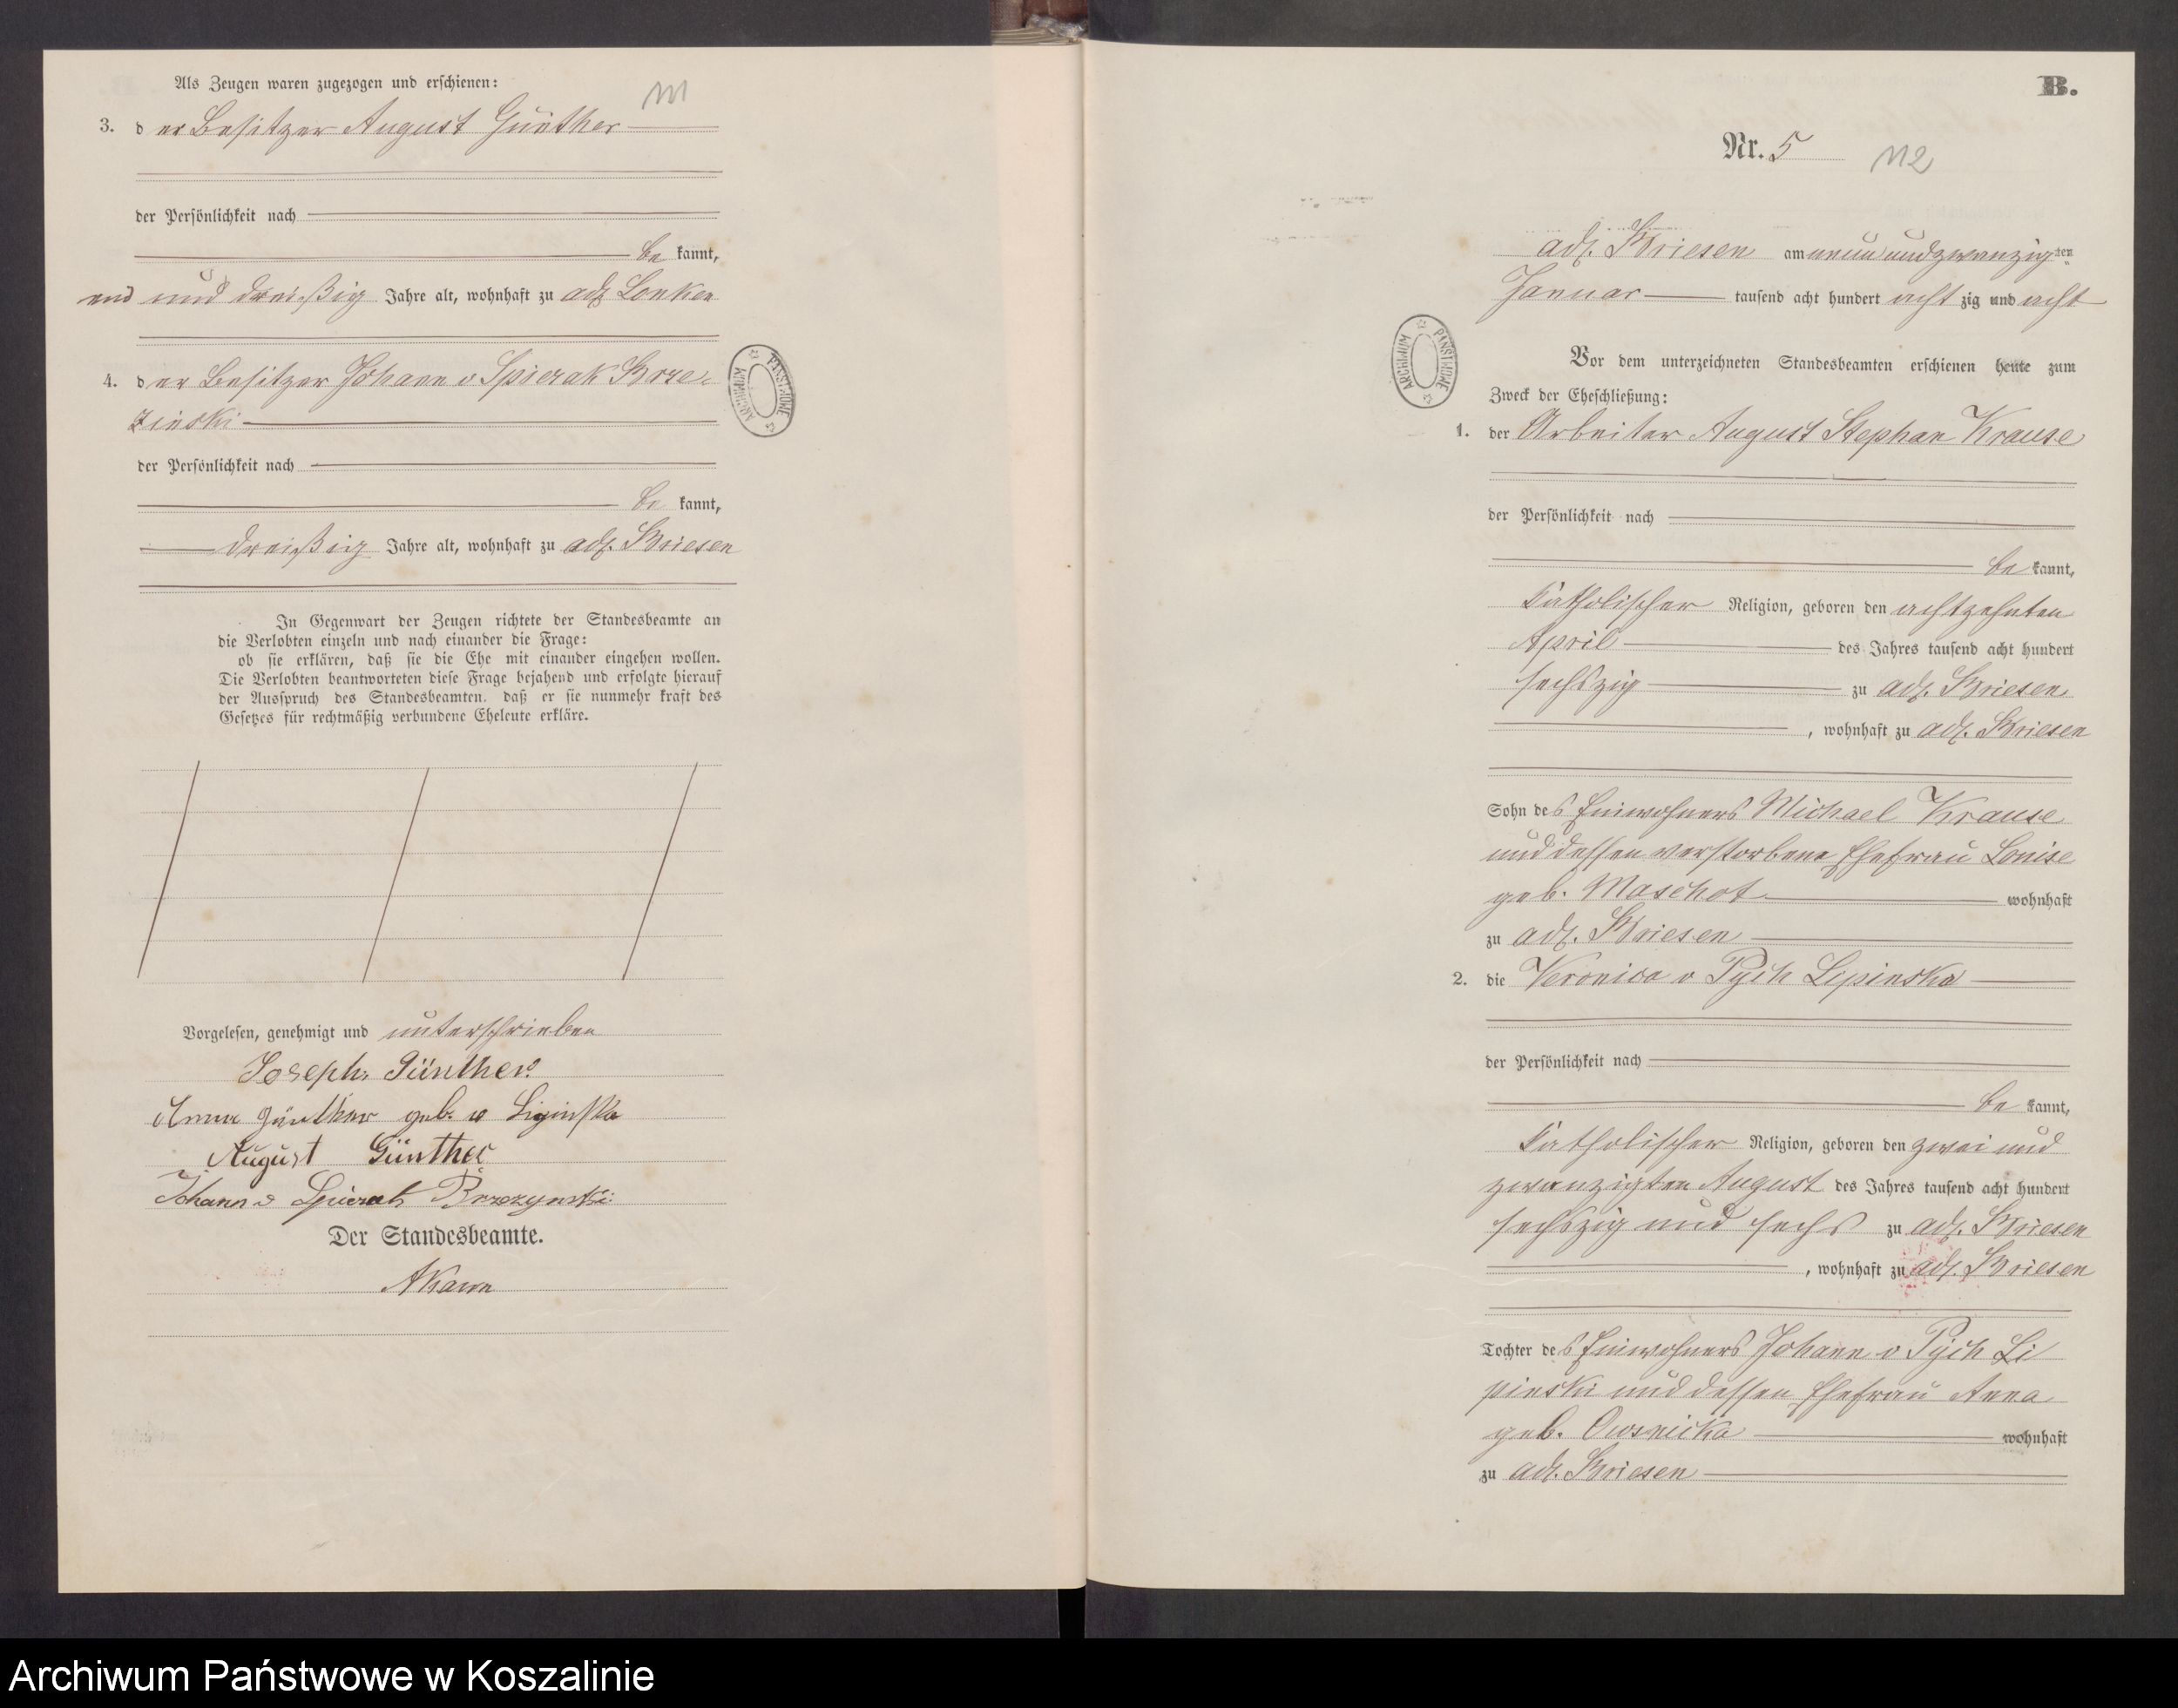 Als Zeugen waren zugezogen und erschienen:
111
3. der Besitzer August Günther
der Persönlichkeit nach
be kannt,
und dreißig Jahre alt, wohnhaft zu adl. Lonken
4. der Besitzer Johann v Spiczak Brze-
zinski
der Persönlichkeit nach
be kannt,
dreißig Jahre alt, wohnhaft zu adl. Briesen
In Gegenwart der Zeugen richtete der Standesbeamte an
die Verlobten einzeln und nach einander die Frage:
ob sie erklären, daß sie die Ehe mit einander eingehen wollen.
Die Verlobten beantworteten diese Frage bejahend und erfolgte hierauf
der Ausspruch des Standesbeamten, daß er sie nunmehr kraft des
Gesetzes für rechtmäßig verbundene Eheleute erkläre.
Vorgelesen, genehmigt und unterschrieben
Joseph Günther
Anna Günther geb. v Lipinska
August Günther
Johann v Spiczak Brzezynski
Der Standesbeamte.
ARCHIWUM PAŃSTWOWE
B.
Nr. 5
112
adl. Briesen am neun und zwanzigten
Januar tausend acht hundert acht zig und acht
ARCHIWUM PAŃSTWOWE
Vor dem unterzeichneten Standesbeamten erschienen heute zum
Zweck der Eheschließung:
1. der Arbeiter August Stephan Krause
der Persönlichkeit nach
be kannt,
katholischer Religion, geboren den achtzehnten
April des Jahres tausend acht hundert
sechszig zu adl. Briesen
, wohnhaft zu adl. Briesen
Sohn des Einwohners Michael Krause
und dessen verstorbene Ehefrau Louise
geb. Maschot wohnhaft
zu adl. Briesen
2. die Veronica v Pych Lipinska
der Persönlichkeit nach
be kannt,
katholischer Religion, geboren den zwei und
zwanzigten August des Jahres tausend acht hundert
sechszig und sechs zu adl. Briesen
, wohnhaft zu adl. Briesen
Tochter des Einwohners Johann v Pych Li
pinski und dessen Ehefrau Anna
geb. Owsnicka wohnhaft
zu adl. Briesen
Archiwum Państwowe w Koszalinie